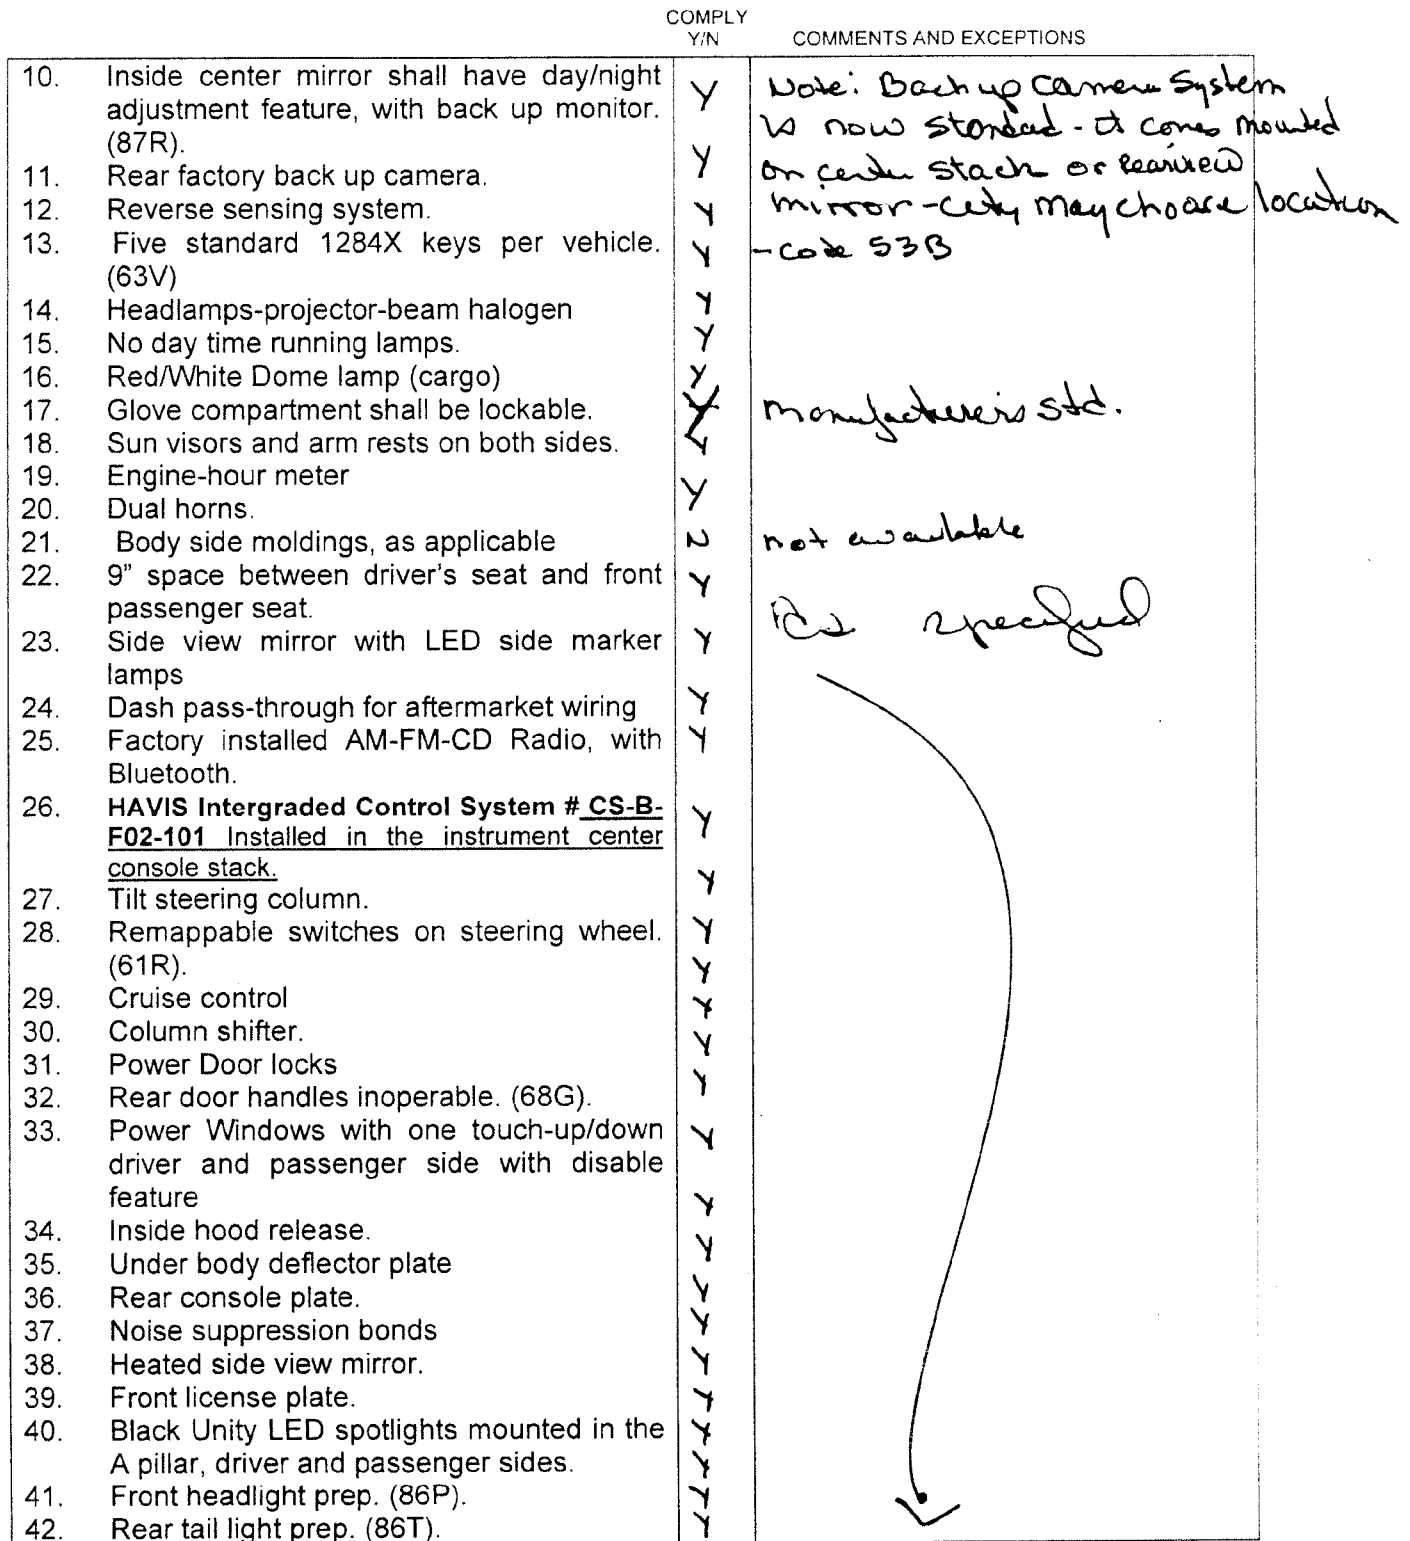 COMPLY
Y/N COMMENTS AND EXCEPTIONS
10. Inside center mirror shall have day/night Y Note: Back up Camera System
adjustment feature, with back up monitor. is now standard - It comes mounted
(87R). Y on center stack or rearview
11. Rear factory back up camera.
12. Reverse sensing system. Y mirror - city may choose location
13. Five standard 1284X keys per vehicle. Y - code 53B
(63V)
14. Headlamps-projector-beam halogen Y
15. No day time running lamps. Y
16. Red/White Dome lamp (cargo) Y
17. Glove compartment shall be lockable. Y manufacturer's std.
18. Sun visors and arm rests on both sides. Y
19. Engine-hour meter Y
20. Dual horns.
21. Body side moldings, as applicable N not available
22. 9" space between driver's seat and front Y As specified
passenger seat.
23. Side view mirror with LED side marker Y
lamps
24. Dash pass-through for aftermarket wiring Y
25. Factory installed AM-FM-CD Radio, with Y
Bluetooth.
26. HAVIS Intergraded Control System # CS-B- Y
F02-101 Installed in the instrument center
console stack. Y
27. Tilt steering column.
28. Remappable switches on steering wheel. Y
(61R). Y
29. Cruise control Y
30. Column shifter. Y
31. Power Door locks Y
32. Rear door handles inoperable. (68G).
33. Power Windows with one touch-up/down Y
driver and passenger side with disable
feature Y
34. Inside hood release. Y
35. Under body deflector plate
36. Rear console plate. Y
37. Noise suppression bonds Y
38. Heated side view mirror. Y
39. Front license plate. Y
40. Black Unity LED spotlights mounted in the Y
A pillar, driver and passenger sides. Y
41. Front headlight prep. (86P). Y
42. Rear tail light prep. (86T). Y